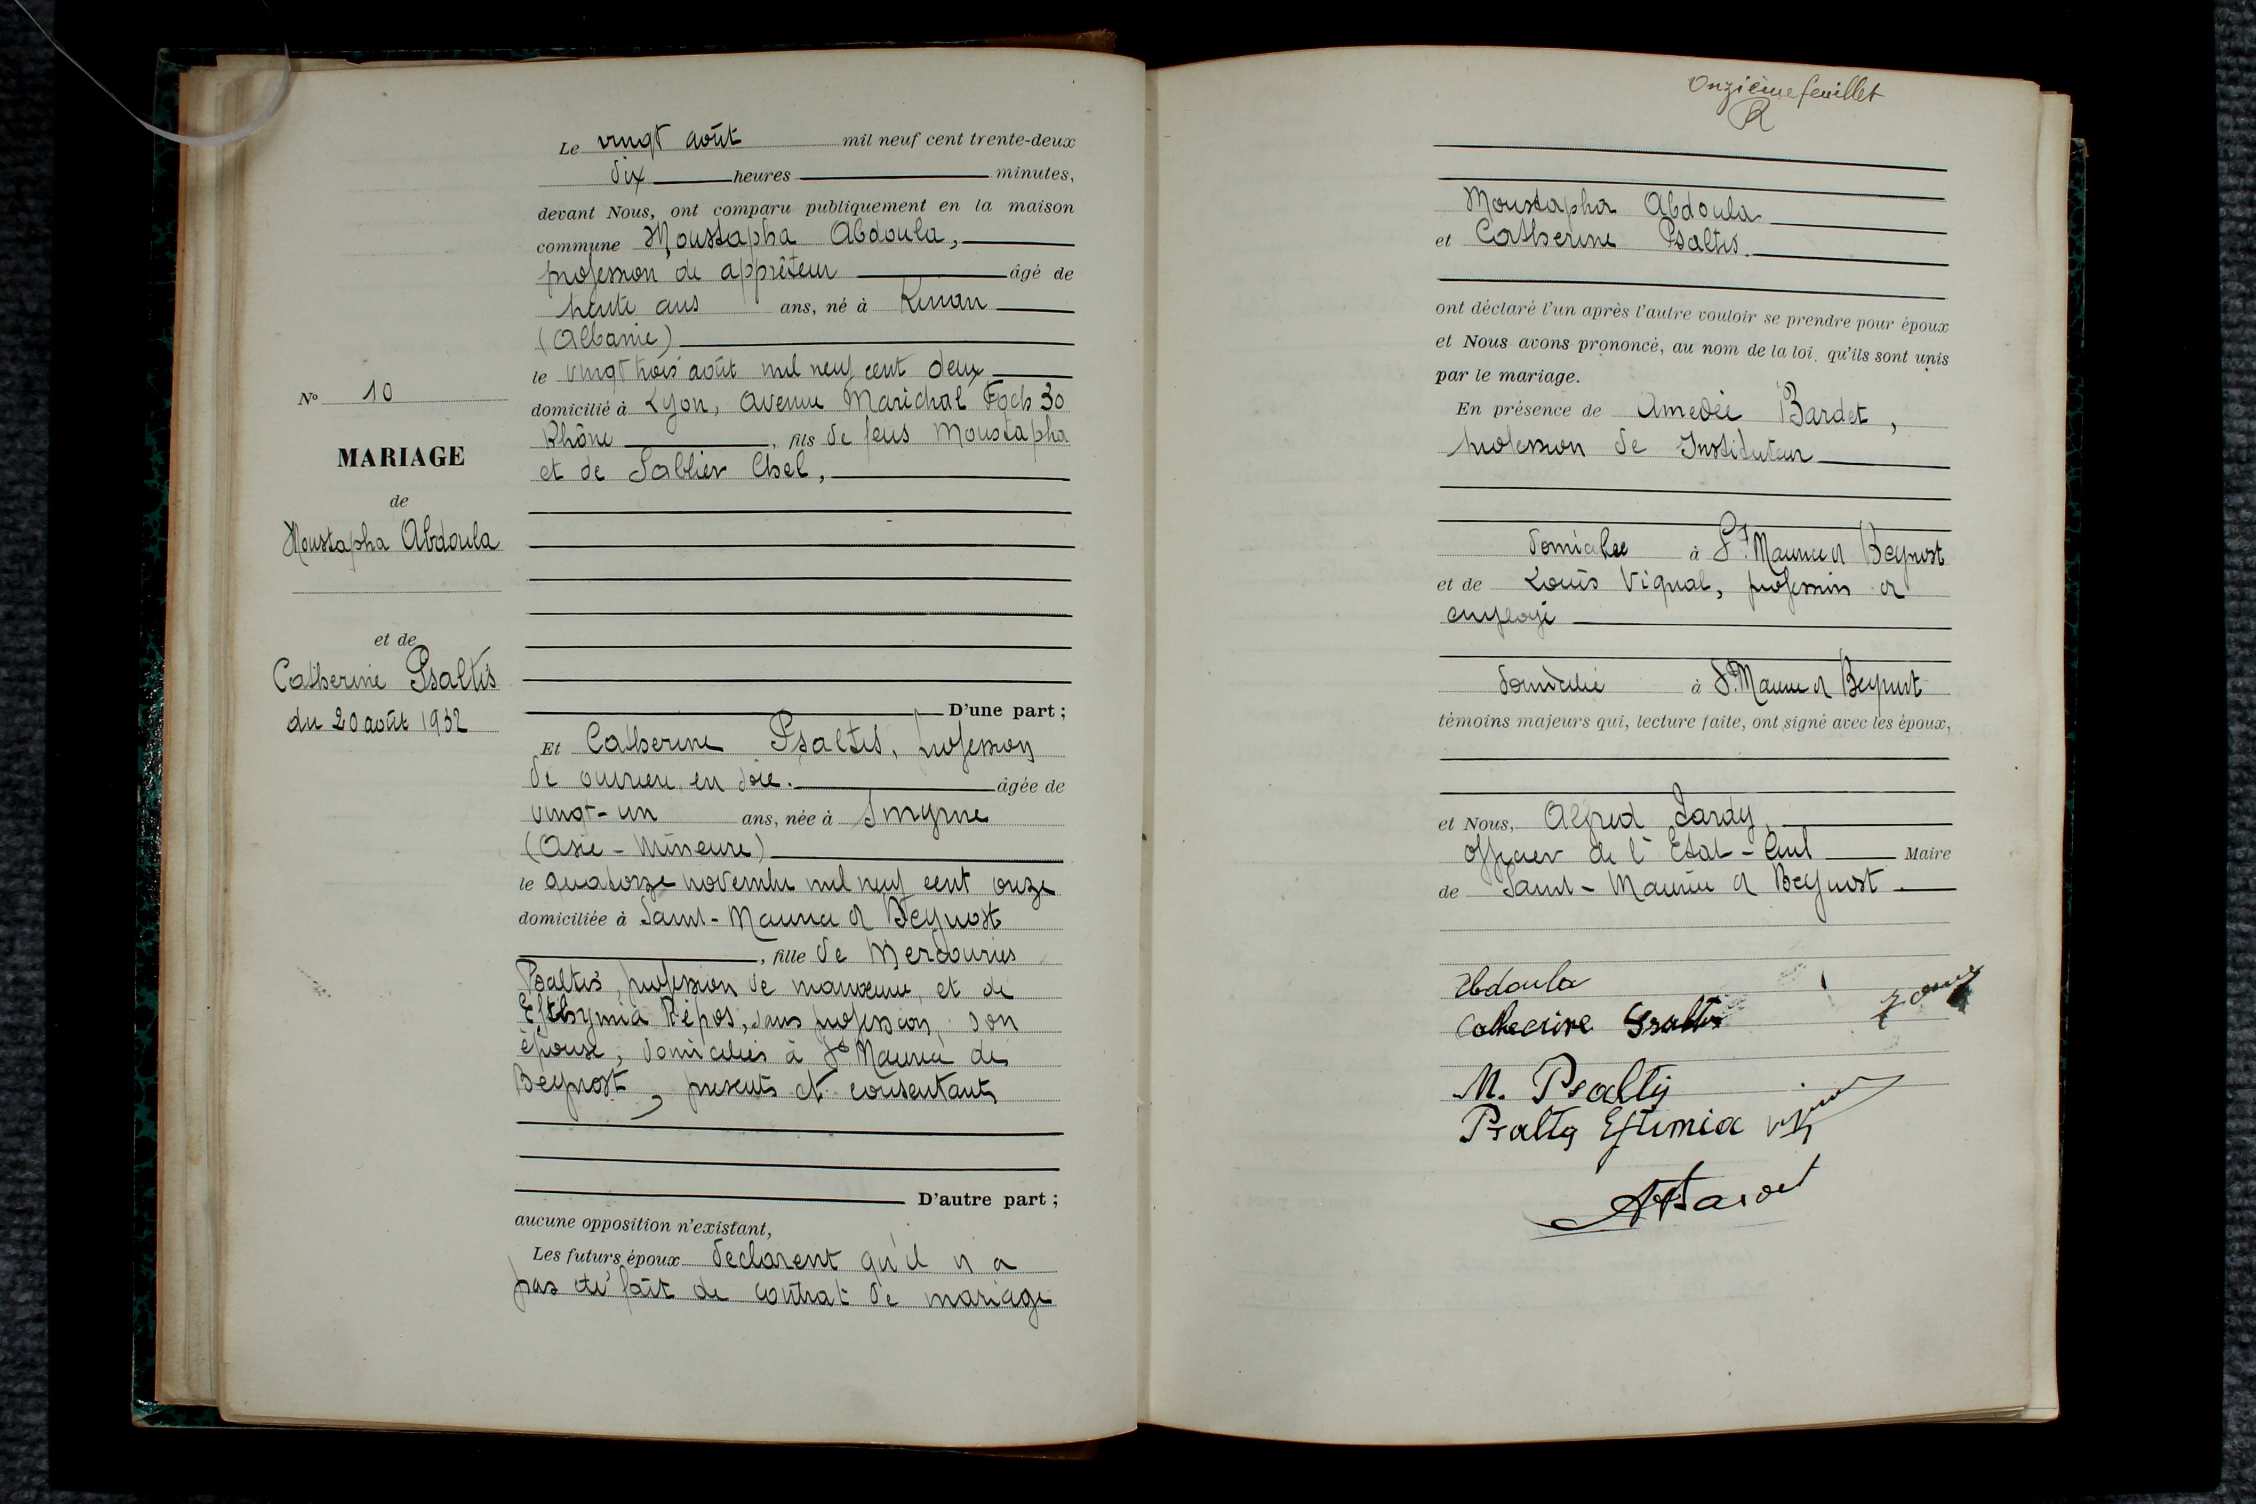 Le vingt août mil neuf cent trente-deux
dix heures minutes,
devant Nous, ont comparu publiquement en la maison
commune Moustapha Abdoula,
profession de apprêteur âgé de
trente ans ans, né à
(Albanie)
le vingt trois août mil neuf cent deux
domicilié à Lyon, Avenue Maréchal Foch 30
Rhône, fils de feus Moustapha
et de Sablier Chel,
D'une part ;
Nº 10
MARIAGE
de
Moustapha Abdoula
et de
Catherine Psaltis
du 20 août 1932
Et Catherine Psaltis, profession
de ouvrière en soie. âgée de
vingt-un ans, née à Smyrne
(Asie-Mineure)
le quatorze novembre mil neuf cent onze
domiciliée à Saint-Maurice de Beynost
, fille de Mercouries
Psaltis, profession de manœuvre, et de
Efthymia Répos, sans profession, son
épouse, domiciliés à St Maurice de
Beynost, présents et consentants
D'autre part ;
aucune opposition n'existant,
Les futurs époux déclarent qu'il n'a
pas été fait de contrat de mariage
Onzième feuillet
Moustapha Abdoula
et Catherine Psaltis.
ont déclaré l'un après l'autre vouloir se prendre pour époux
et Nous avons prononcé, au nom de la loi, qu'ils sont unis
par le mariage.
En présence de Amedée Bardet,
profession de Instituteur
domicilié à St Maurice de Beynost
et de Louis Vignal, profession de
employé
domicilié à St Maurice de Beynost
témoins majeurs qui, lecture faite, ont signé avec les époux,
et Nous, Alfred Jardy,
officier de l'Etat-Civil Maire
de Saint-Maurice de Beynost.
Abdoula
Catherine Psaltis
M. Psaltis
Psaltis Eftimia
ABardet